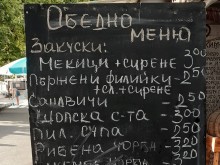 Обедно
меню
Закуски:
Мекици + сирене - 300
Пържени филийки - 250
+ сл. + сирене
Сандвичи - 250
Шопска с-та - 300
Пил. супа - 250
Рибена чорба - 320